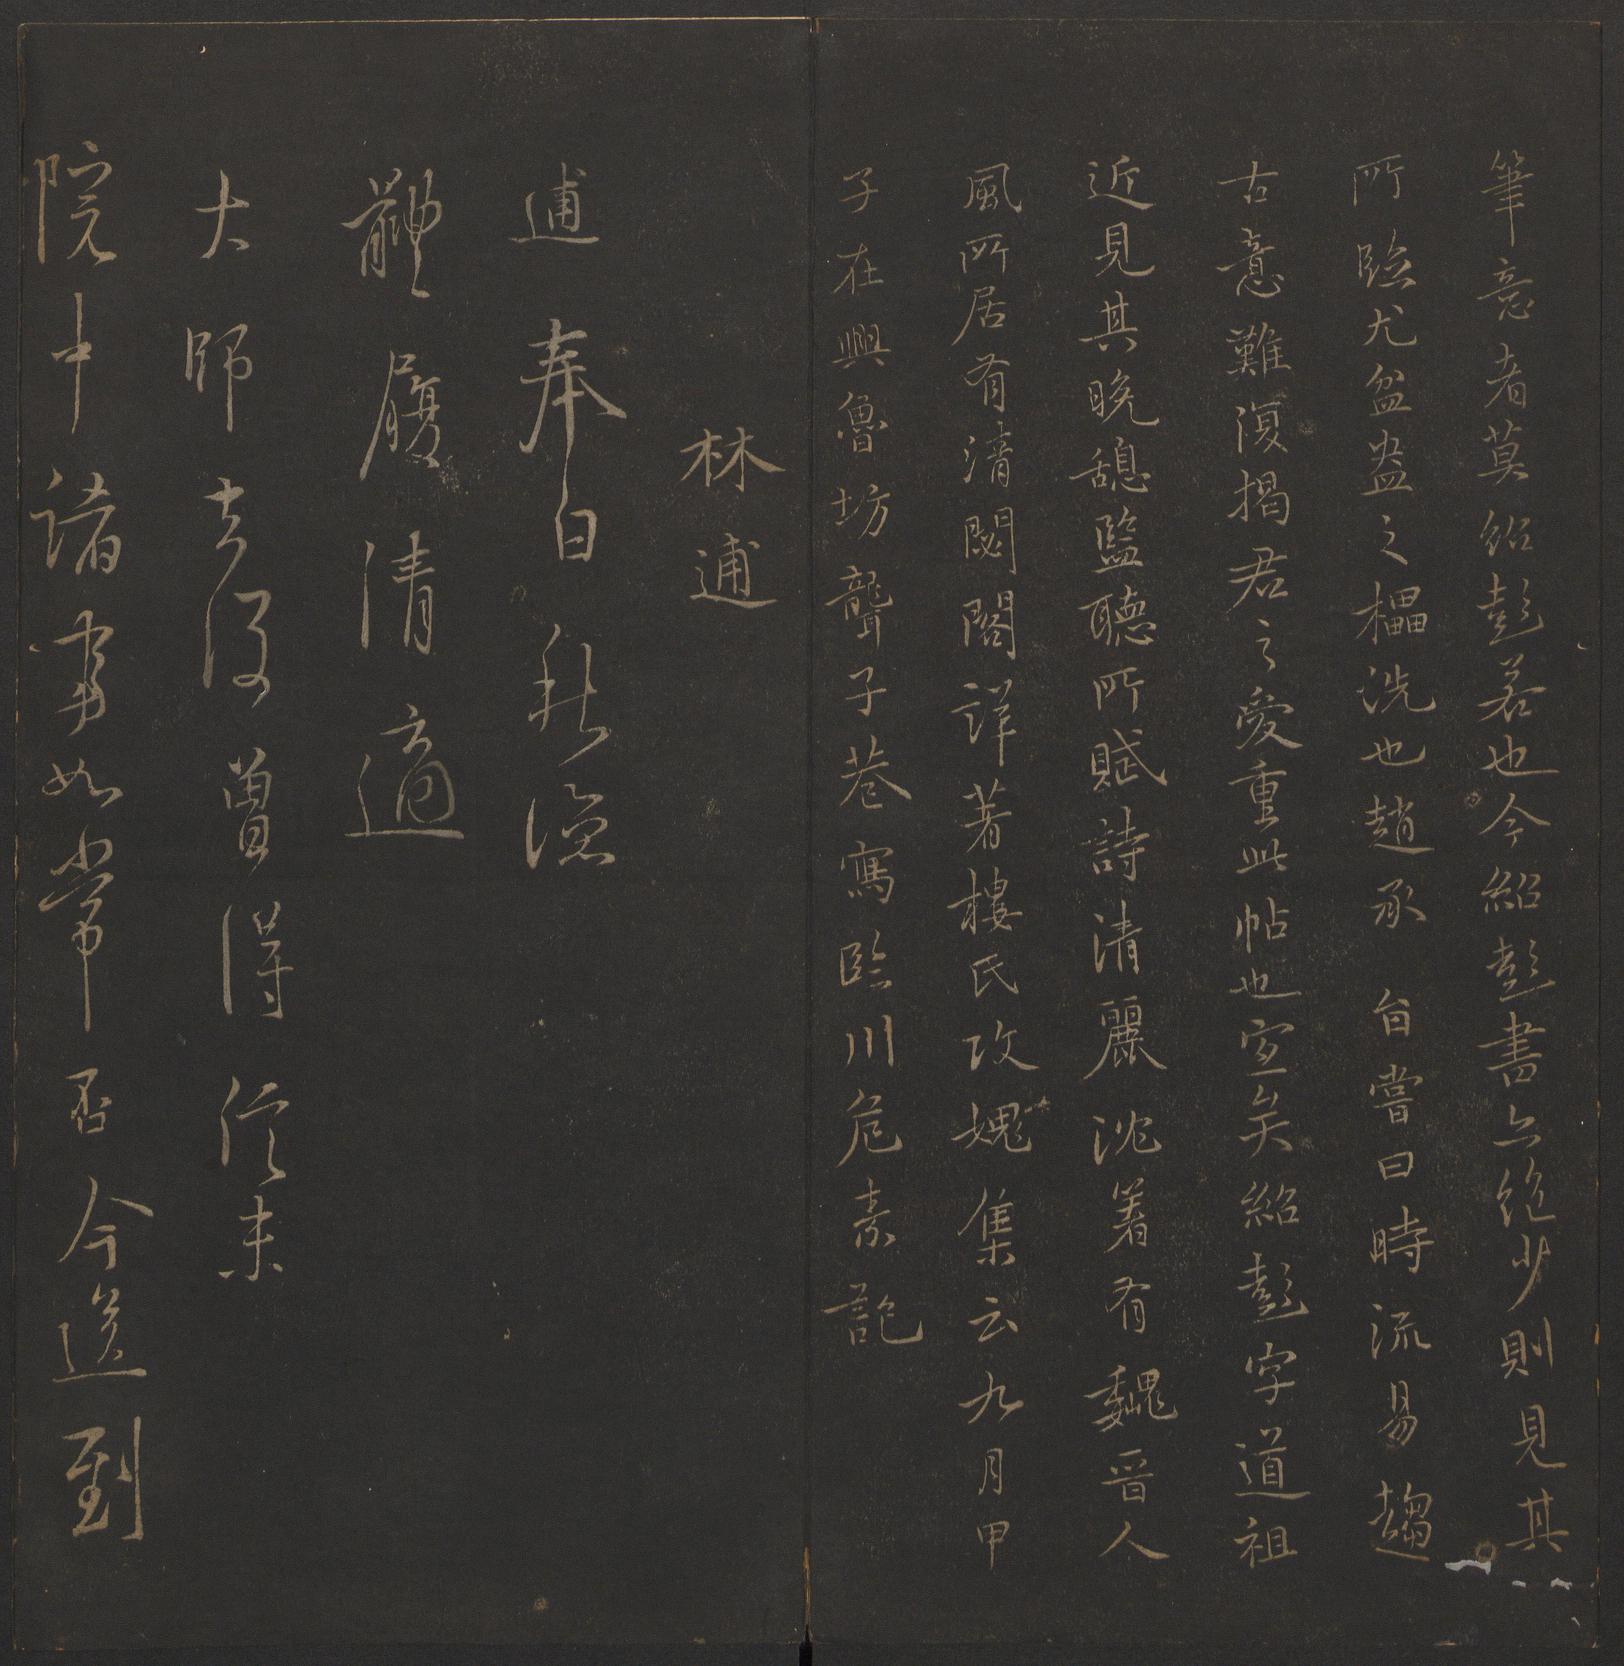 筆意者莫紹彭若也今紹彭書亦絶少則見其
所臨尤盆盎之櫑洗也趙承旨嘗曰時流易趨
古意難復揭君之愛重此帖也宜矣紹彭字道祖
近見其晚憇監聽所賦詩清麗沈著有魏晉人
風所居有清閟閣詳著樓氏攻媿集云九月甲
子在興魯坊聾子巷寫臨川危素記
林逋
逋奉白秋涼
體履清適
大師去後曾得信未
院中諸事如常否今送到